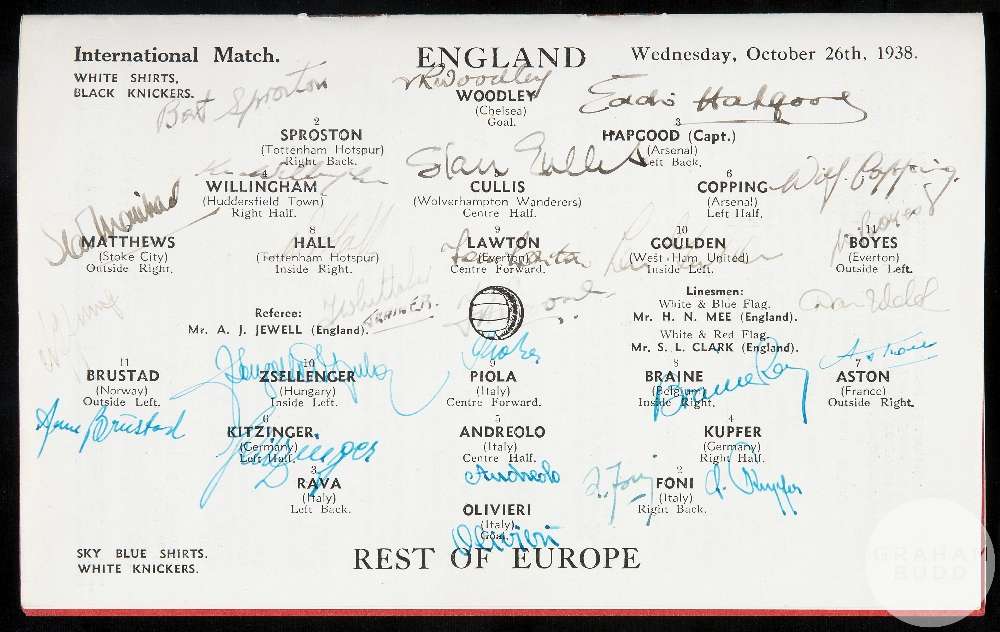 International Match.
ENGLAND
Wednesday, October 26th, 1938.
WHITE SHIRTS,
BLACK KNICKERS.
Bert Sproston
V R Woodley
Eddie Hapgood
WOODLEY
(Chelsea)
Goal.
2
SPROSTON
(Tottenham Hotspur)
Right Back.
3
HAPGOOD (Capt.)
(Arsenal)
Left Back.
Stan Cullis
Wilf Copping.
4
WILLINGHAM
(Huddersfield Town)
Right Half.
CULLIS
(Wolverhampton Wanderers)
Centre Half.
6
COPPING
(Arsenal)
Left Half.
MATTHEWS
(Stoke City)
Outside Right.
8
HALL
(Tottenham Hotspur)
Inside Right.
9
LAWTON
(Everton)
Centre Forward.
10
GOULDEN
(West Ham United)
Inside Left.
11
BOYES
(Everton)
Outside Left.
Referee:
Mr. A. J. JEWELL (England).
TRAINER.
Linesmen:
White & Blue Flag.
Mr. H. N. MEE (England).
White & Red Flag.
Mr. S. L. CLARK (England).
11
BRUSTAD
(Norway)
Outside Left.
10
ZSELLENGER
(Hungary)
Inside Left.
9
PIOLA
(Italy)
Centre Forward.
8
BRAINE
(Belgium)
Inside Right.
7
ASTON
(France)
Outside Right.
Aston
Arne Brustad
Braine Ray
6
KITZINGER.
(Germany)
Left Half.
Kitzinger
5
ANDREOLO
(Italy)
Centre Half.
Andreolo
4
KUPFER
(Germany)
Right Half.
A. Kupfer
3
RAVA
(Italy)
Left Back.
2
FONI
(Italy)
Right Back.
A. Foni
OLIVIERI
(Italy)
Goal.
Olivieri
SKY BLUE SHIRTS.
WHITE KNICKERS.
REST OF EUROPE
GRAHAM
BUDD